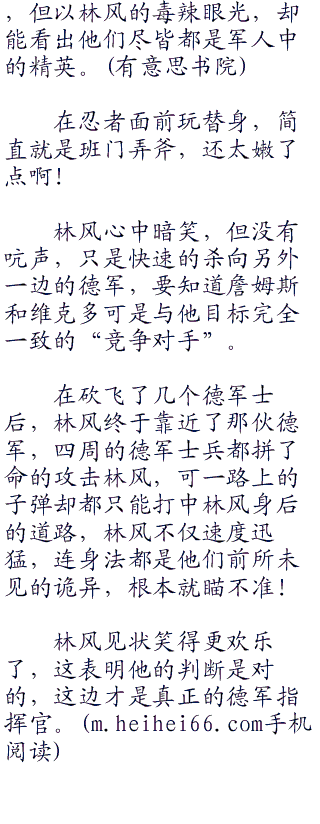 ，但以林风的毒辣眼光，却
能看出他们尽皆都是军人中
的精英。(有意思书院)
在忍者面前玩替身，简
直就是班门弄斧，还太嫩了
点啊！
林风心中暗笑，但没有
吭声，只是快速的杀向另外
一边的德军，要知道詹姆斯
和维克多可是与他目标完全
一致的“竞争对手”。
在砍飞了几个德军士
后，林风终于靠近了那伙德
军，四周的德军士兵都拼了
命的攻击林风，可一路上的
子弹却都只能打中林风身后
的道路，林风不仅速度迅
猛，连身法都是他们前所未
见的诡异，根本就瞄不准！
林风见状笑得更欢乐
了，这表明他的判断是对
的，这边才是真正的德军指
挥官。(m.heihei66.com手机
阅读)